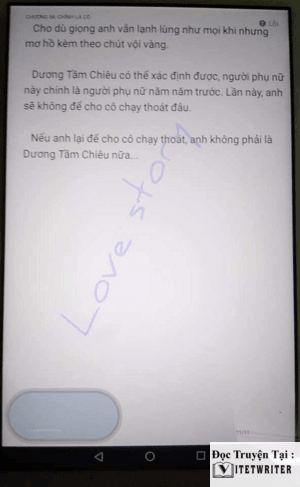 CHƯƠNG 38: CHÍNH LÀ CÔ
Lỗi
Cho dù giọng anh vẫn lạnh lùng như mọi khi nhưng
mơ hồ kèm theo chút vội vàng.
Dương Tầm Chiêu có thể xác định được, người phụ nữ
này chính là người phụ nữ năm năm trước. Lần này, anh
sẽ không để cho cô chạy thoát đâu.
Nếu anh lại để cho cô chạy thoát, anh không phải là
Dương Tầm Chiêu nữa...
Love story
11/11
Đọc Truyện Tại :
VITETWRITER